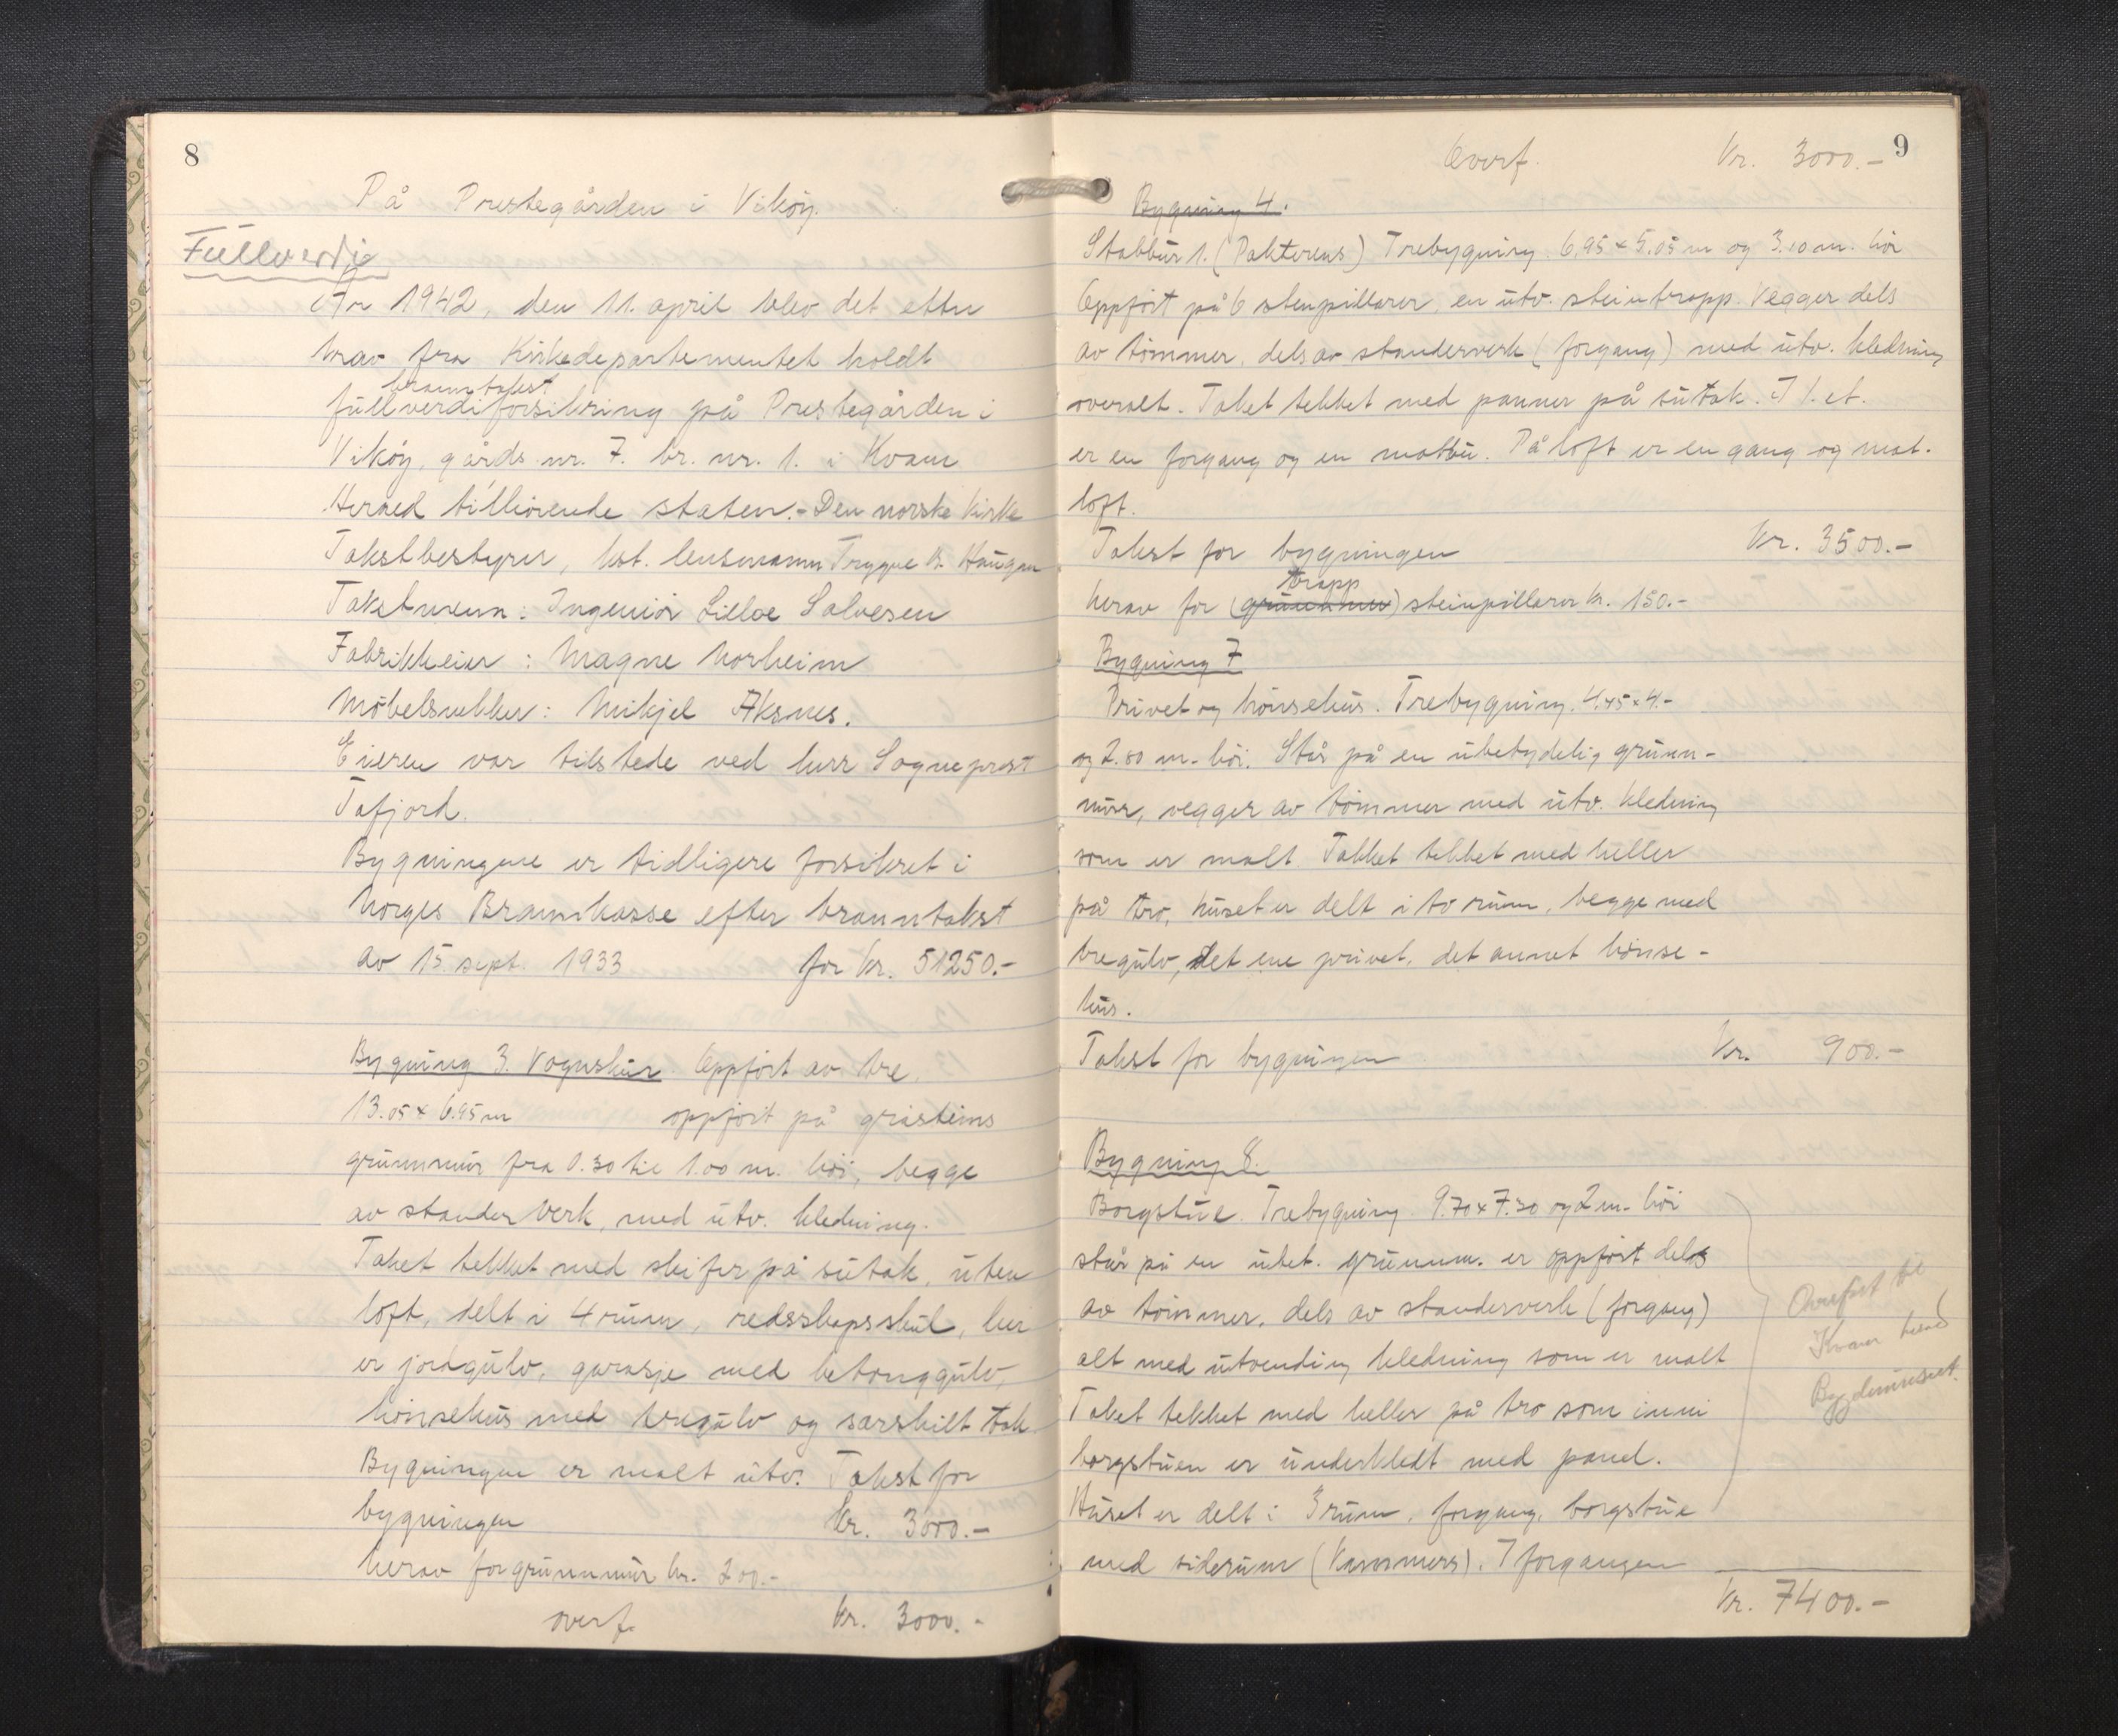 8
På Prestegården i Vikøy.
Fullverdi
År 1942, den 11. april blev det etter
krav fra Kirkedepartementet holdt
branntakst
fullverdiforsikring på Prestegården i
Vikøy, gårds nr. 7. br. nr. 1. i Kvam
Herred tilhørende staten.- Den norske kirke
Takstbestyrer, kst. lensmann Trygve B. Haugen
Takstmenn: Ingeniør Lilloe Salvesen
Fabrikkeier: Magne Norheim
Møbelsnekker: Mikjel Aksnes.
Eieren var tilstede ved herr Sogneprest
Tafjord.
Bygningene er tidligere forsikret i
Norges Brannkasse efter branntakst
av 15. sept. 1933 for kr. 51250.-
Bygning 3. Vognskur. Oppført av tre.
13.05 x 6.95 m oppført på gråsteins
grunnmur fra 0.30 til 1.00 m. høi, begge
av standerverk, med utv. kledning.
Taket tekket med skifer på sutak, uten
loft, delt i 4 rum, redskapsskul, her
er jordgulv, garasje med betonggulv,
hønsehus med tregulv og særskilt tak
Bygningen er malt utv. Takst for
bygningen kr. 3000.-
herav for grunnmur kr. 200.-
overf. kr. 3000.-
9
Overf. kr. 3000.-
Bygning 4.
Stabbur 1. (Paktorens) Trebygning 6.95 x 5.05 m og 3.10 m. høi
Oppført på 6 stenpillarer, en utv. steintrapp. Vegger dels
av tømmer, dels av standerverk (forgang) med utv. kledning
overalt. Taket tekket med panner på sutak. I 1. et.
er en forgang og en matbu. På loft er en gang og mat-
loft.
Takst for bygningen kr. 3500.-
trapp
herav for (grunnmur) steinpillarer kr. 150.-
Bygning 7
Privet og hønsehus. Trebygning. 4.45 x 4.-
og 2.80 m. høi. Står på en ubetydelig grunn-
mur, vegger av tømmer med utv. kledning
som er malt. Takket tekket med heller
på tro, huset er delt i to rum, begge med
tregulv, det ene privet, det annet hønse-
hus.
Takst for bygningen kr. 900.-
Bygning 8.
Borgstue. Trebygning 9.70 x 7.30 og 2 m. høi
står på en ubet. grunnm. er oppført dels
av tømmer, dels av standerverk (forgang)
alt med utvendig kledning som er malt
Taket tekket med heller på tro som inni
borgstuen er underkledt med panel.
Huset er delt i 3 rum, forgang, borgstue
med siderum (kammers). I forgangen
kr. 7400.-
Overført til
Kvam herad
Bygdemuseet.